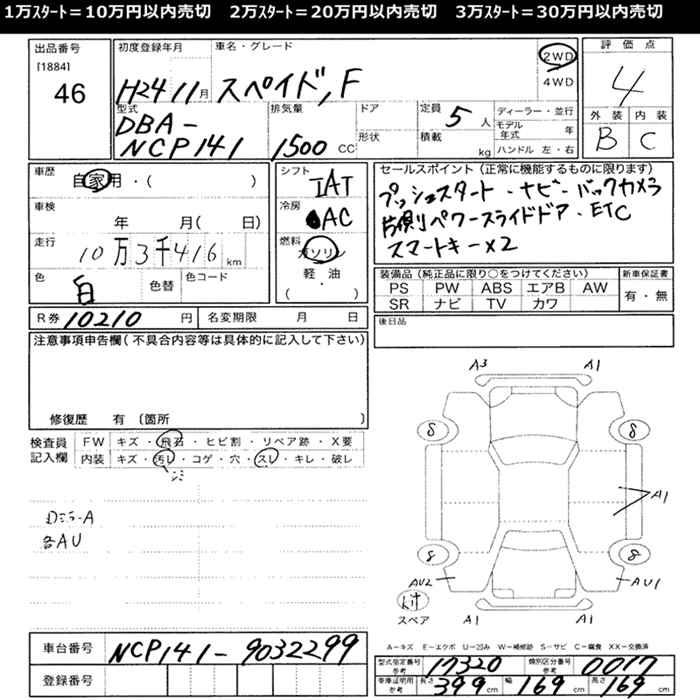 1万ｽﾀｰﾄ＝10万円以内売切　2万ｽﾀｰﾄ＝20万円以内売切　3万ｽﾀｰﾄ＝30万円以内売切
出品番号
[1884]
46
初度登録年月
H24 11月
車名・グレード
スペイド, F
2WD
4WD
評価点
4
外装 内装
B C
型式
DBA-
NCP141
排気量
1500 CC
ドア
形状
定員 5 人
積載 kg
ディーラー・並行
モデル年式 年
ハンドル 左・右
車歴
自家用・( )
車検
年 月( 日)
走行
10万3千416 km
色
白
色替
色コード
シフト
IAT
冷房
AC
燃料
ガソリン
軽・油
( )
セールスポイント（正常に機能するものに限ります）
プッシュスタート・ナビ・バックカメラ
片側パワースライドドア・ETC
スマートキー×2
装備品（純正品に限り○をつけてください）
PS PW ABS エアB AW
SR ナビ TV カワ
新車保証書
有・無
R券 10210 円
名変期限 月 日
後日品
注意事項申告欄（不具合内容等は具体的に記入して下さい）
修復歴 有 〔箇所 〕
検査員
記入欄
FW キズ・飛石・ヒビ割・リペア跡・X要
内装 キズ・汚レ・コゲ・穴・スレ・キレ・破レ
ﾛﾐﾗｰA
各AU
A3 A1
8 8
A1
8 8
AU2 AU1
ｷｯﾄ
スペア
A1 A1
A－キズ E－エクボ U－凹み W－補修跡 S－サビ C－腐食 XX－交換済
車台番号 NCP141-9032299
登録番号
型式指定番号 参考 17320
類別区分番号 参考 0017
車庫証明用 参考 長さ 399 cm 幅 169 cm 高さ 169 cm